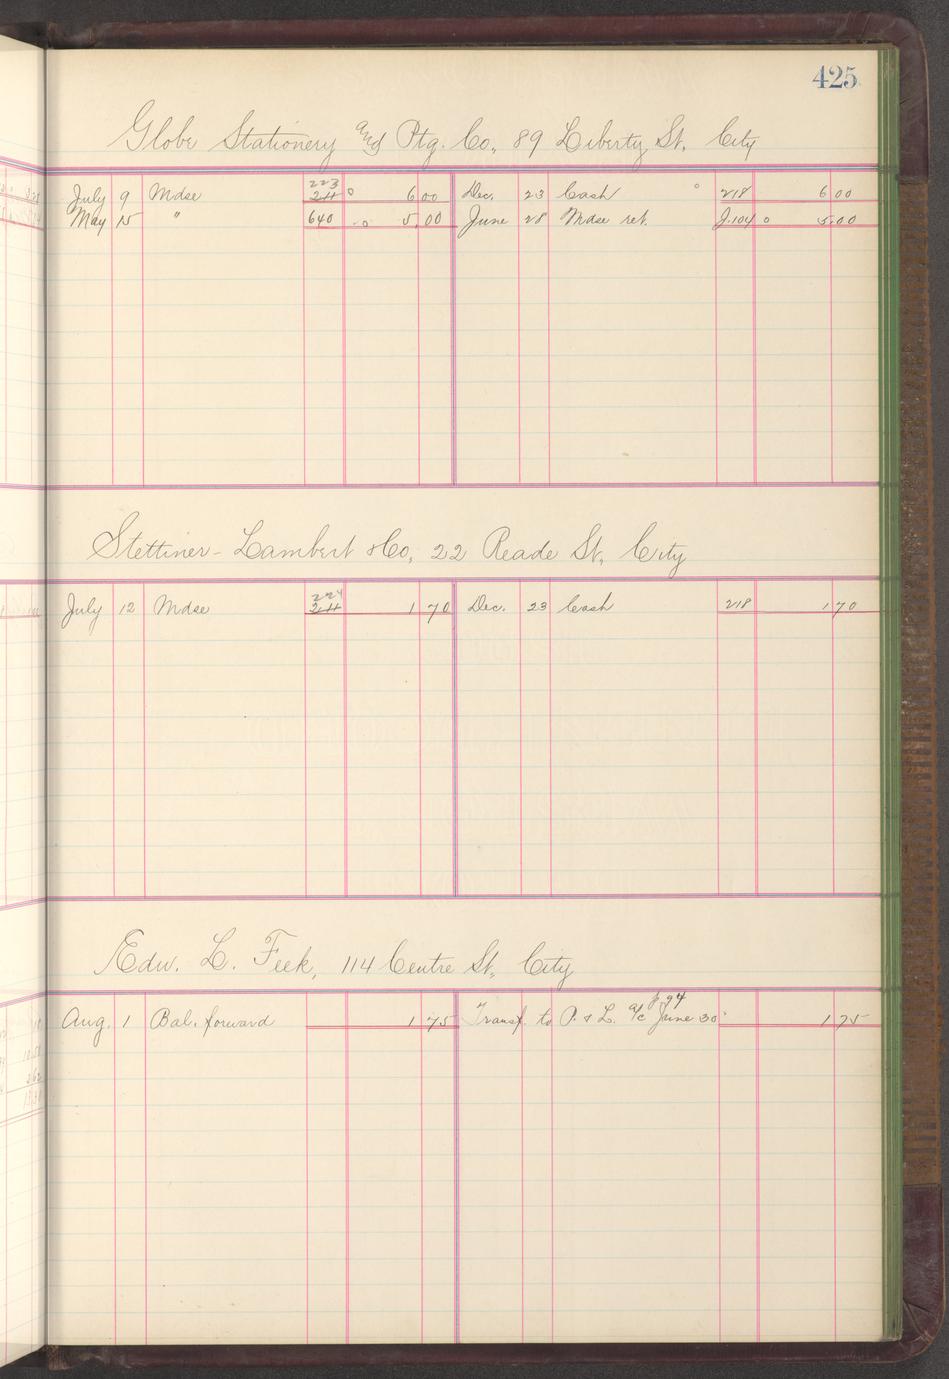 425
Globe Stationery and Ptg. Co., 89 Liberty St, City
223
July 9 Mdse 24 6 00 Dec. 23 Cash 218 6 00
May 15 " 640 5.00 June 28 Mdse ret. J.104 5.00
Stettiner-Lambert & Co, 22 Reade St, City
224
July 12 Mdse 24 1 70 Dec. 23 Cash 218 1 70
Edw. L. Feek, 114 Centre St, City
Aug. 1 Bal. forward 1 75 Transf. to P. & L. a/c June 30 1 75